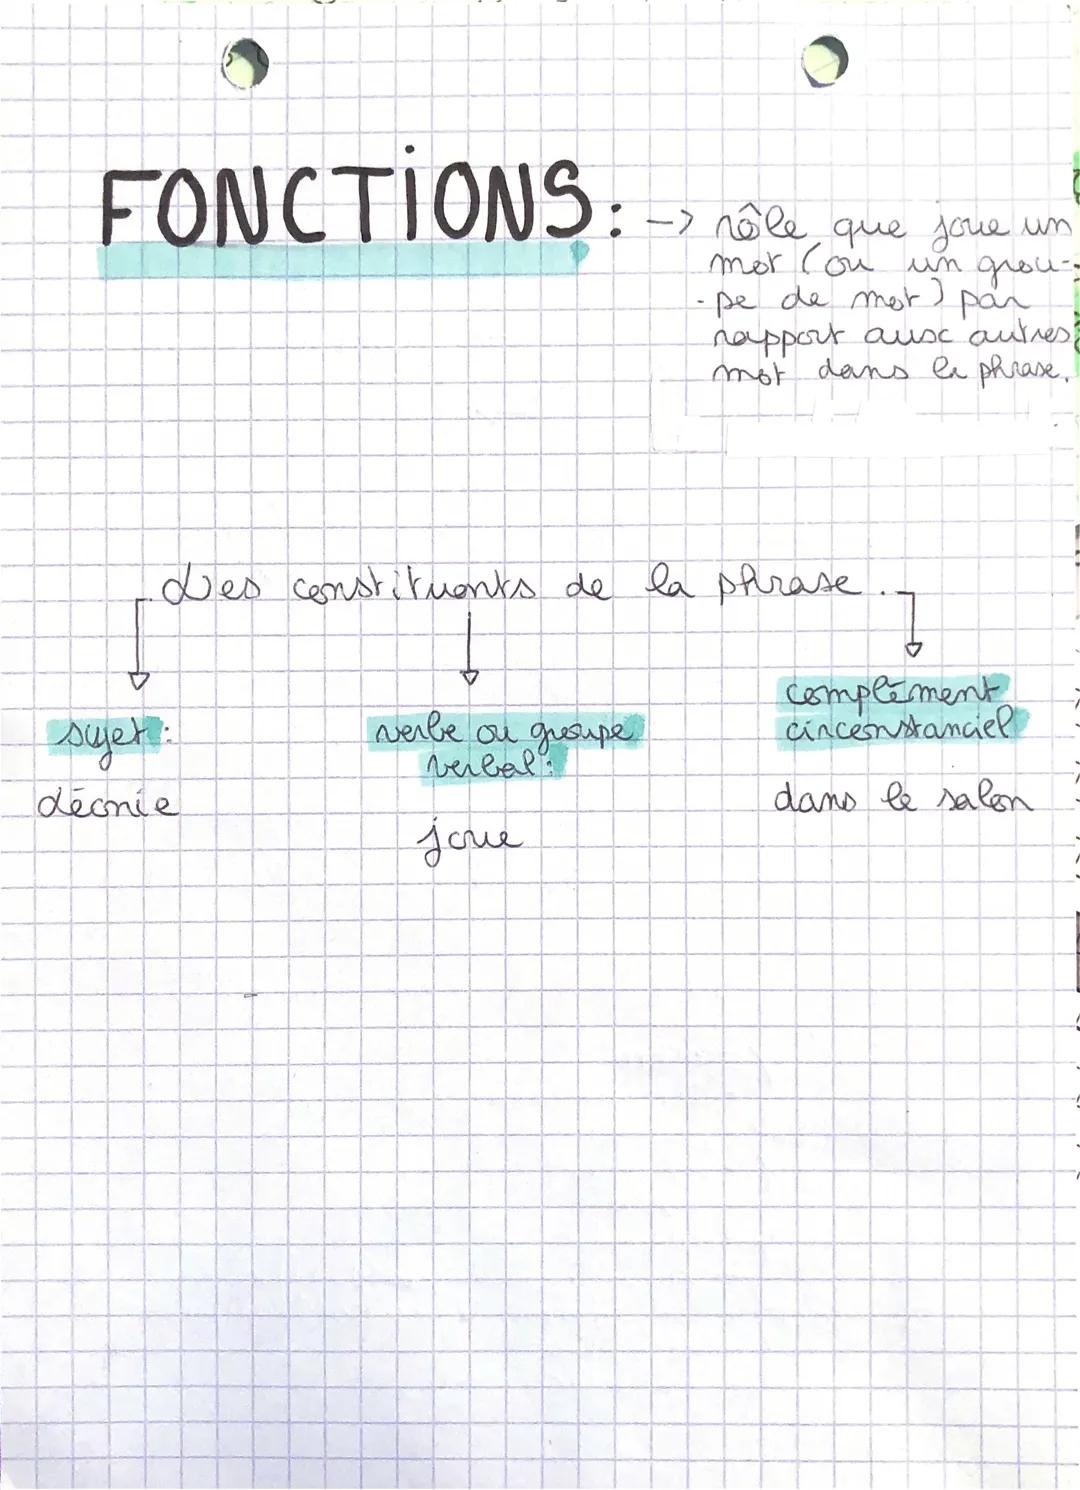 FONCTIONS: -> rôle que joue un
mot (ou un grou-
-pe de mot) par
rapport aux autres
mot dans la phrase.
Les constituants de la phrase.
sujet:
Léonie
verbe ou groupe
verbal:
joue
complément
circonstanciel
dans le salon